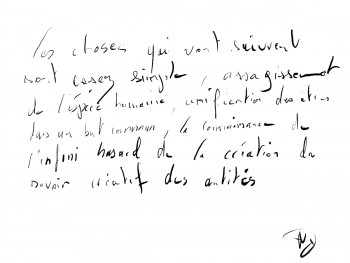 Les choses qui vont suivrent
sont assez simple, assagissement
de l'espèce humaine, unification des êtres
dans un but commun, la connaissance de
l'infini hasard de la création du
savoir créatif des entités